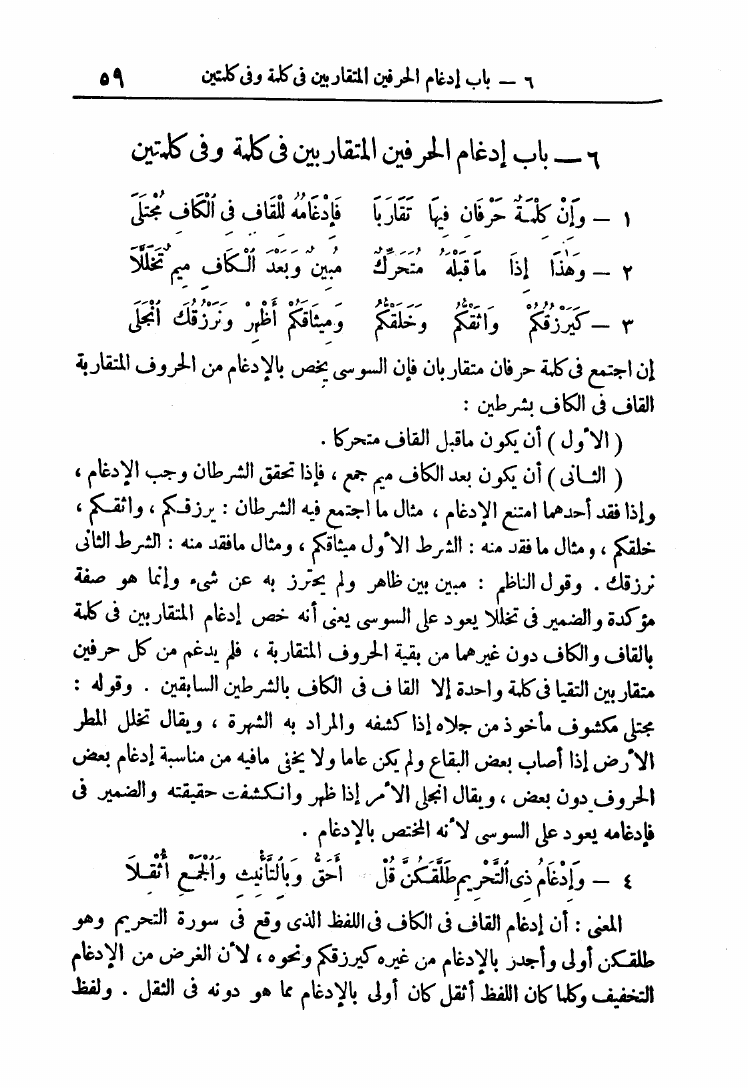 ٦ – باب إدغام الحرفين المتقاربين فى كلمة وفى كلمتين ٥٩
٦ – باب إدغام الحرفين المتقاربين فى كلمة وفى كلمتين
١ – وَإِنْ كِلْمَةٌ حَرْفَانِ فِيهَا تَقَارَبَا فَإِدْغَامُهُ لِلْقَافِ فِى الْكَافِ مُجْتَلَى
٢ – وَهٰذَا إِذَا مَا قَبْلَهُ مُتَحَرِّكٌ مُبِينٌ وَبَعْدَ الْكَافِ مِيمٌ تَخَلَّلَا
٣ – كَيَرْزُقُكُّمُ وَاثَقَكُّمُ وَخَلَقَكُّمُ وَمِيثَاقَكُمْ أَظْهِرْ وَنَرْزُقُكَ انْجَلَى
إن اجتمع فى كلمة حرفان متقاربان فإن السوسى يخص بالإدغام من الحروف المتقاربة
القاف فى الكاف بشرطين :
( الأول ) أن يكون ماقبل القاف متحركا .
( الثانى ) أن يكون بعد الكاف ميم جمع ، فإذا تحقق الشرطان وجب الإدغام ،
وإذا فقد أحدهما امتنع الإدغام ، مثال ما اجتمع فيه الشرطان : يرزقكم ، واثقكم ،
خلقكم ، ومثال ما فقد منه : الشرط الأول ميثاقكم ، ومثال مافقد منه : الشرط الثانى
نرزقك . وقول الناظم : مبين بين ظاهر ولم يحترز به عن شىء وإنما هو صفة
مؤكدة والضمير فى تخللا يعود على السوسى يعنى أنه خص إدغام المتقاربين فى كلمة
بالقاف والكاف دون غيرهما من بقية الحروف المتقاربة ، فلم يدغم من كل حرفين
متقاربين التقيا فى كلمة واحدة إلا القاف فى الكاف بالشرطين السابقين . وقوله :
مجتلى مكشوف مأخوذ من جلاه إذا كشفه والمراد به الشهرة ، ويقال تخلل المطر
الأرض إذا أصاب بعض البقاع ولم يكن عاما ولا يخفى مافيه من مناسبة إدغام بعض
الحروف دون بعض ، ويقال انجلى الأمر إذا ظهر وانكشفت حقيقته والضمير فى
فإدغامه يعود على السوسى لأنه المختص بالإدغام .
٤ – وَإِدْغَامُ ذِى التَّحْرِيمِ طَلَّقَكُنَّ قُلْ أَحَقُّ وَبِالتَّأْنِيثِ وَالْجَمْعِ أُثْقِلَا
المعنى : أن إدغام القاف فى الكاف فى اللفظ الذى وقع فى سورة التحريم وهو
طلقكن أولى وأجدر بالإدغام من غيره كيرزقكم ونحوه ، لأن الغرض من الإدغام
التخفيف وكلما كان اللفظ أثقل كان أولى بالإدغام مما هو دونه فى الثقل . ولفظ